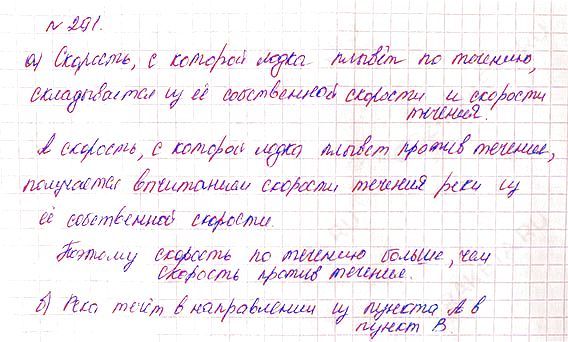 № 291.
а) Скорость, с которой лодка плывёт по течению,
складывается из её собственной скорости и скорости
течения.
А скорость, с которой лодка плывет против течения,
получается вычитанием скорости течения реки из
её собственной скорости.
Поэтому скорость по течению больше, чем
скорость против течения.
б) Река течёт в направлении из пункта А в
пункт В.